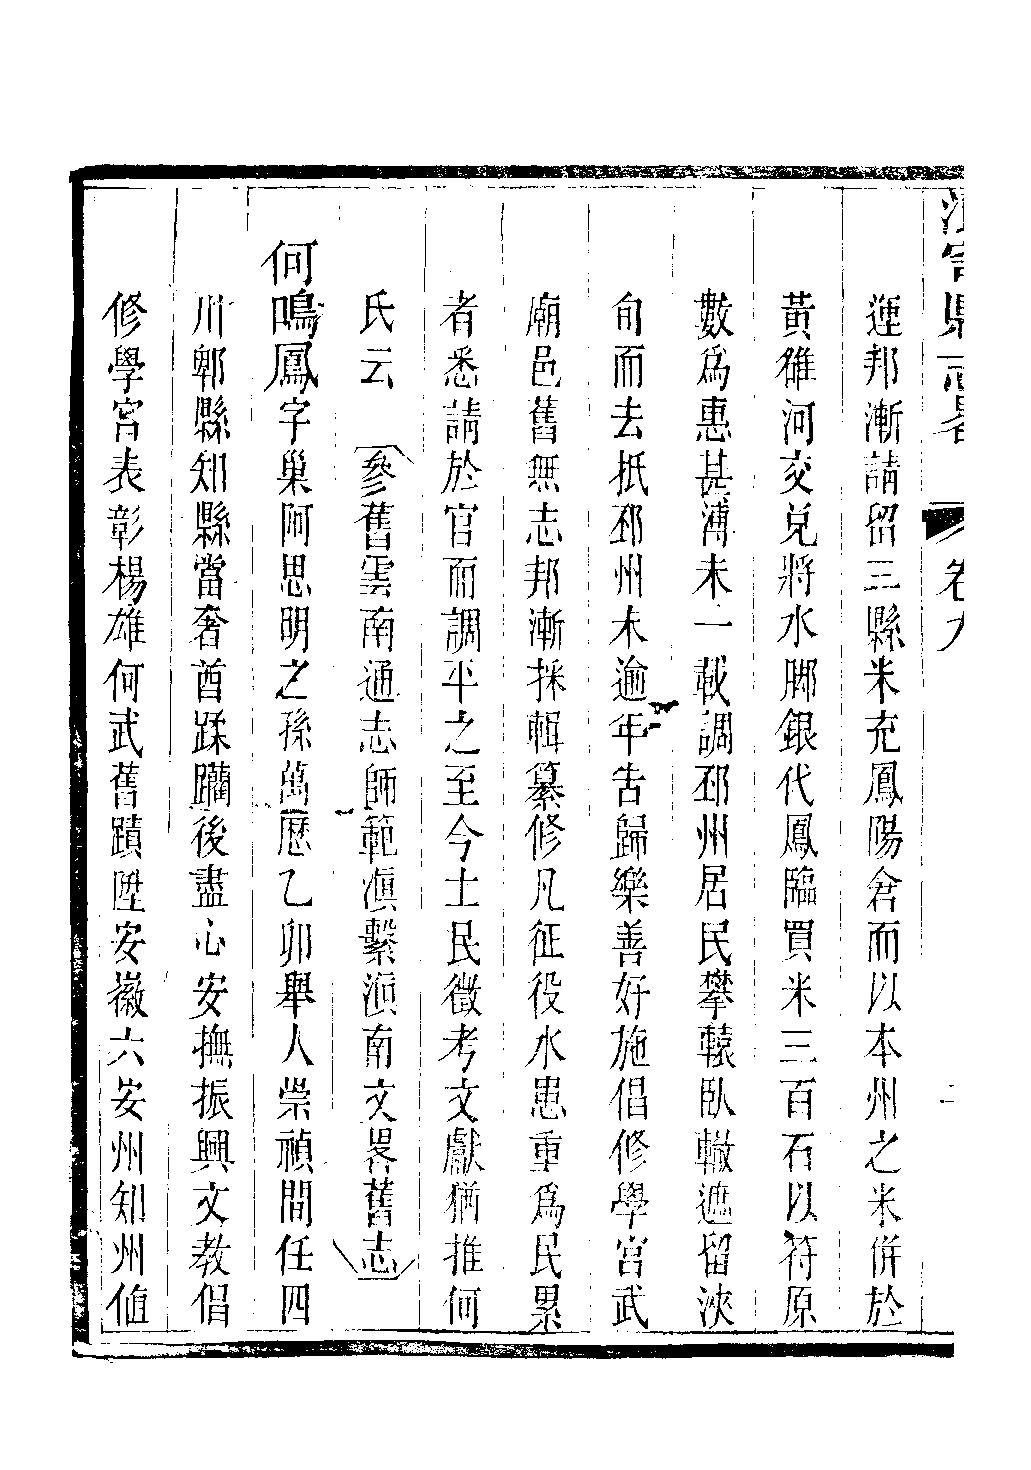 縣志畧 卷九 二
運邦漸請留三縣米充鳳陽倉而以本州之米併於
黃雒河交兌將水脚銀代鳳臨買米三百石以符原
數爲惠甚溥未一載調邳州居民攀轅臥轍遮留浹
旬而去抵邳州未逾年告歸樂善好施倡修學宮武
廟邑舊無志邦漸採輯纂修凡征役水患重爲民累
者悉請於官而調平之至今土民徵考文獻猶推何
氏云 參舊雲南通志師範滇繫滇南文畧舊志
何鳴鳳字巢阿思明之孫萬歷乙卯舉人崇禎間任四
川郫縣知縣當奢酋蹂躪後盡心安撫振興文教倡
修學宮表彰楊雄何武舊蹟陞安徽六安州知州値